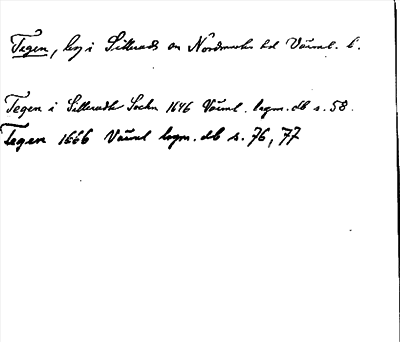 Tegen, by i Sillerud sn Nordmarks hd Värml. l.
Tegen i Silleruds Sochn 1646 Värml. lagm. db s. 58.
Tegen 1666 Värml lagm. db s. 76, 77